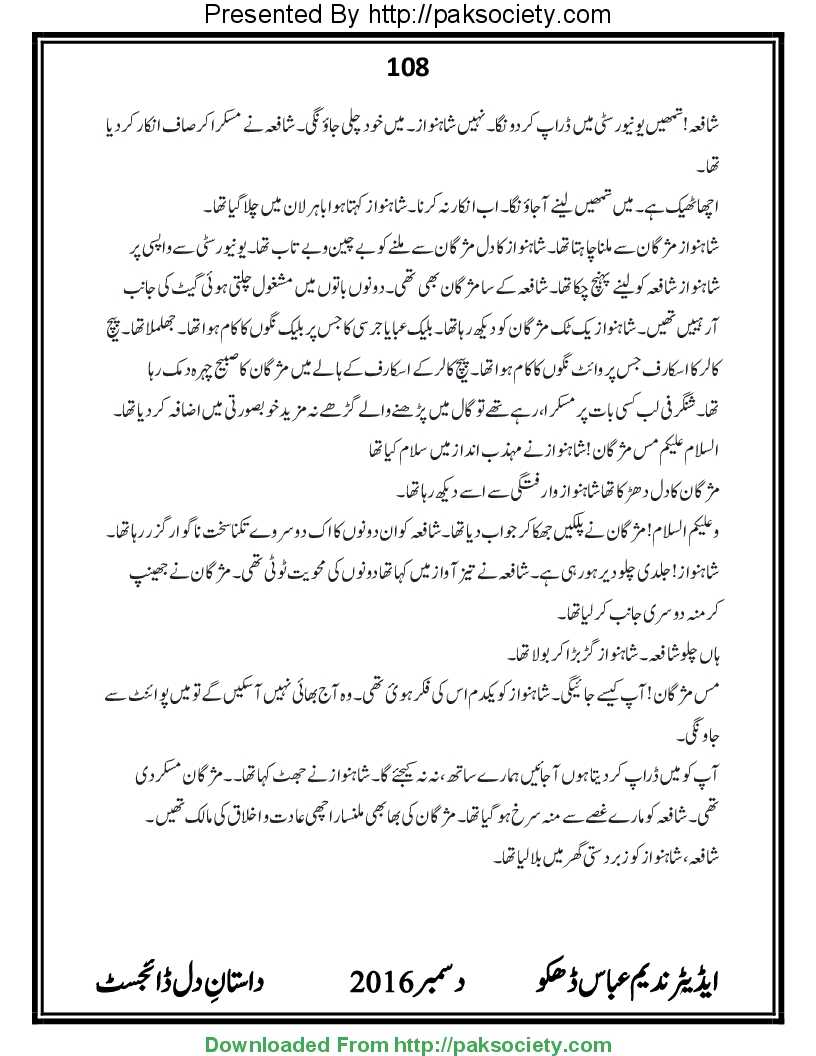 Presented By http://paksociety.com
108
شافعہ! تمھیں یونیورسٹی میں ڈراپ کردونگا۔ نہیں شاہنواز۔ میں خود چلی جاؤنگی۔ شافعہ نے مسکرا کر صاف انکار کردیا
تھا۔
اچھا ٹھیک ہے۔ میں تمھیں لینے آجاؤنگا۔ اب انکار نہ کرنا۔ شاہنواز کہتا ہوا باہر لان میں چلا گیا تھا۔
شاہنواز مژگان سے ملنا چاہتا تھا۔ شاہنواز کا دل مژگان سے ملنے کو بے چین و بے تاب تھا۔ یونیورسٹی سے واپسی پر
شاہنواز شافعہ کو لینے پہنچ چکا تھا۔ شافعہ کے سا مژگان بھی تھی۔ دونوں باتوں میں مشغول چلتی ہوئی گیٹ کی جانب
آرہییں تھیں۔ شاہنواز یک ٹک مژگان کو دیکھ رہا تھا۔ بلیک عبایا جرسی کا جس پر بلیک نگوں کا کام ہوا تھا۔ جھلملا تھا۔ پیچ
کالر کا اسکارف جس پر وائٹ نگوں کا کام ہوا تھا۔ پیچ کالر کے اسکارف کے ہالے میں مژگان کا صبیح چہرہ دمک رہا
تھا۔ شنگرفی لب کسی بات پر مسکرا، رہے تھے تو گال میں پڑھنے والے گڑھے نہ مزید خوبصورتی میں اضافہ کردیا تھا۔
السلام علیکم مس مژگان! شاہنواز نے مہذب انداز میں سلام کیا تھا
مژگان کا دل دھڑکا تھا شاہنواز وارفتگی سے اسے دیکھ رہا تھا۔
وعلیکم السلام! مژگان نے پلکیں جھکا کر جواب دیا تھا۔ شافعہ کو ان دونوں کا اک دوسروے تکنا سخت ناگوار گزر رہا تھا۔
شاہنواز! جلدی چلو دیر ہورہی ہے۔ شافعہ نے تیز آواز میں کہا تھا دونوں کی محویت ٹوٹی تھی۔ مژگان نے جھینپ
کر منہ دوسری جانب کرلیا تھا۔
ہاں چلو شافعہ۔ شاہنواز گڑبڑا کر بولا تھا۔
مس مژگان! آپ کیسے جائیگی۔ شاہنواز کو یکدم اس کی فکر ہوئ تھی۔ وہ آج بھائی نہیں آسکیں گے تو میں پوائنٹ سے
جاونگی۔
آپ کو میں ڈراپ کردیتا ہوں آجائیں ہمارے ساتھ، نہ نہ کیجئے گا۔ شاہنواز نے جھٹ کہا تھا۔۔ مژگان مسکردی
تھی۔ شافعہ کو مارے غصے سے منہ سرخ ہوگیا تھا۔ مژگان کی بھابھی ملنسار اچھی عادت و اخلاق کی مالک تھیں۔
شافعہ، شاہنواز کو زبردستی گھر میں بلالیا تھا۔
ایڈیٹر ندیم عباس ڈھکو دسمبر 2016 داستانِ دل ڈائجسٹ
Downloaded From http://paksociety.com